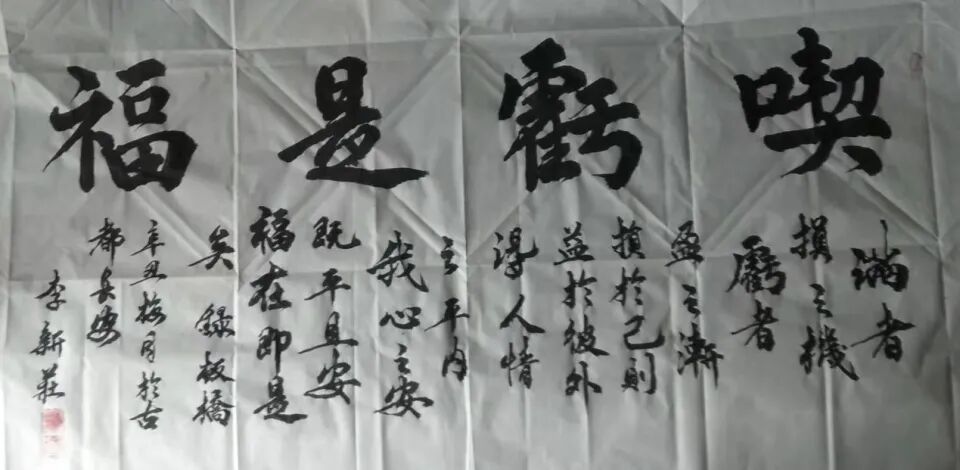 喫虧是福
滿者
損之機
虧者
盈之漸
損於己則
益於彼外
得人情
之平內
我心之安
既平且安
福在即是
矣 錄板橋
辛丑梅月於古
都長安
李新莊